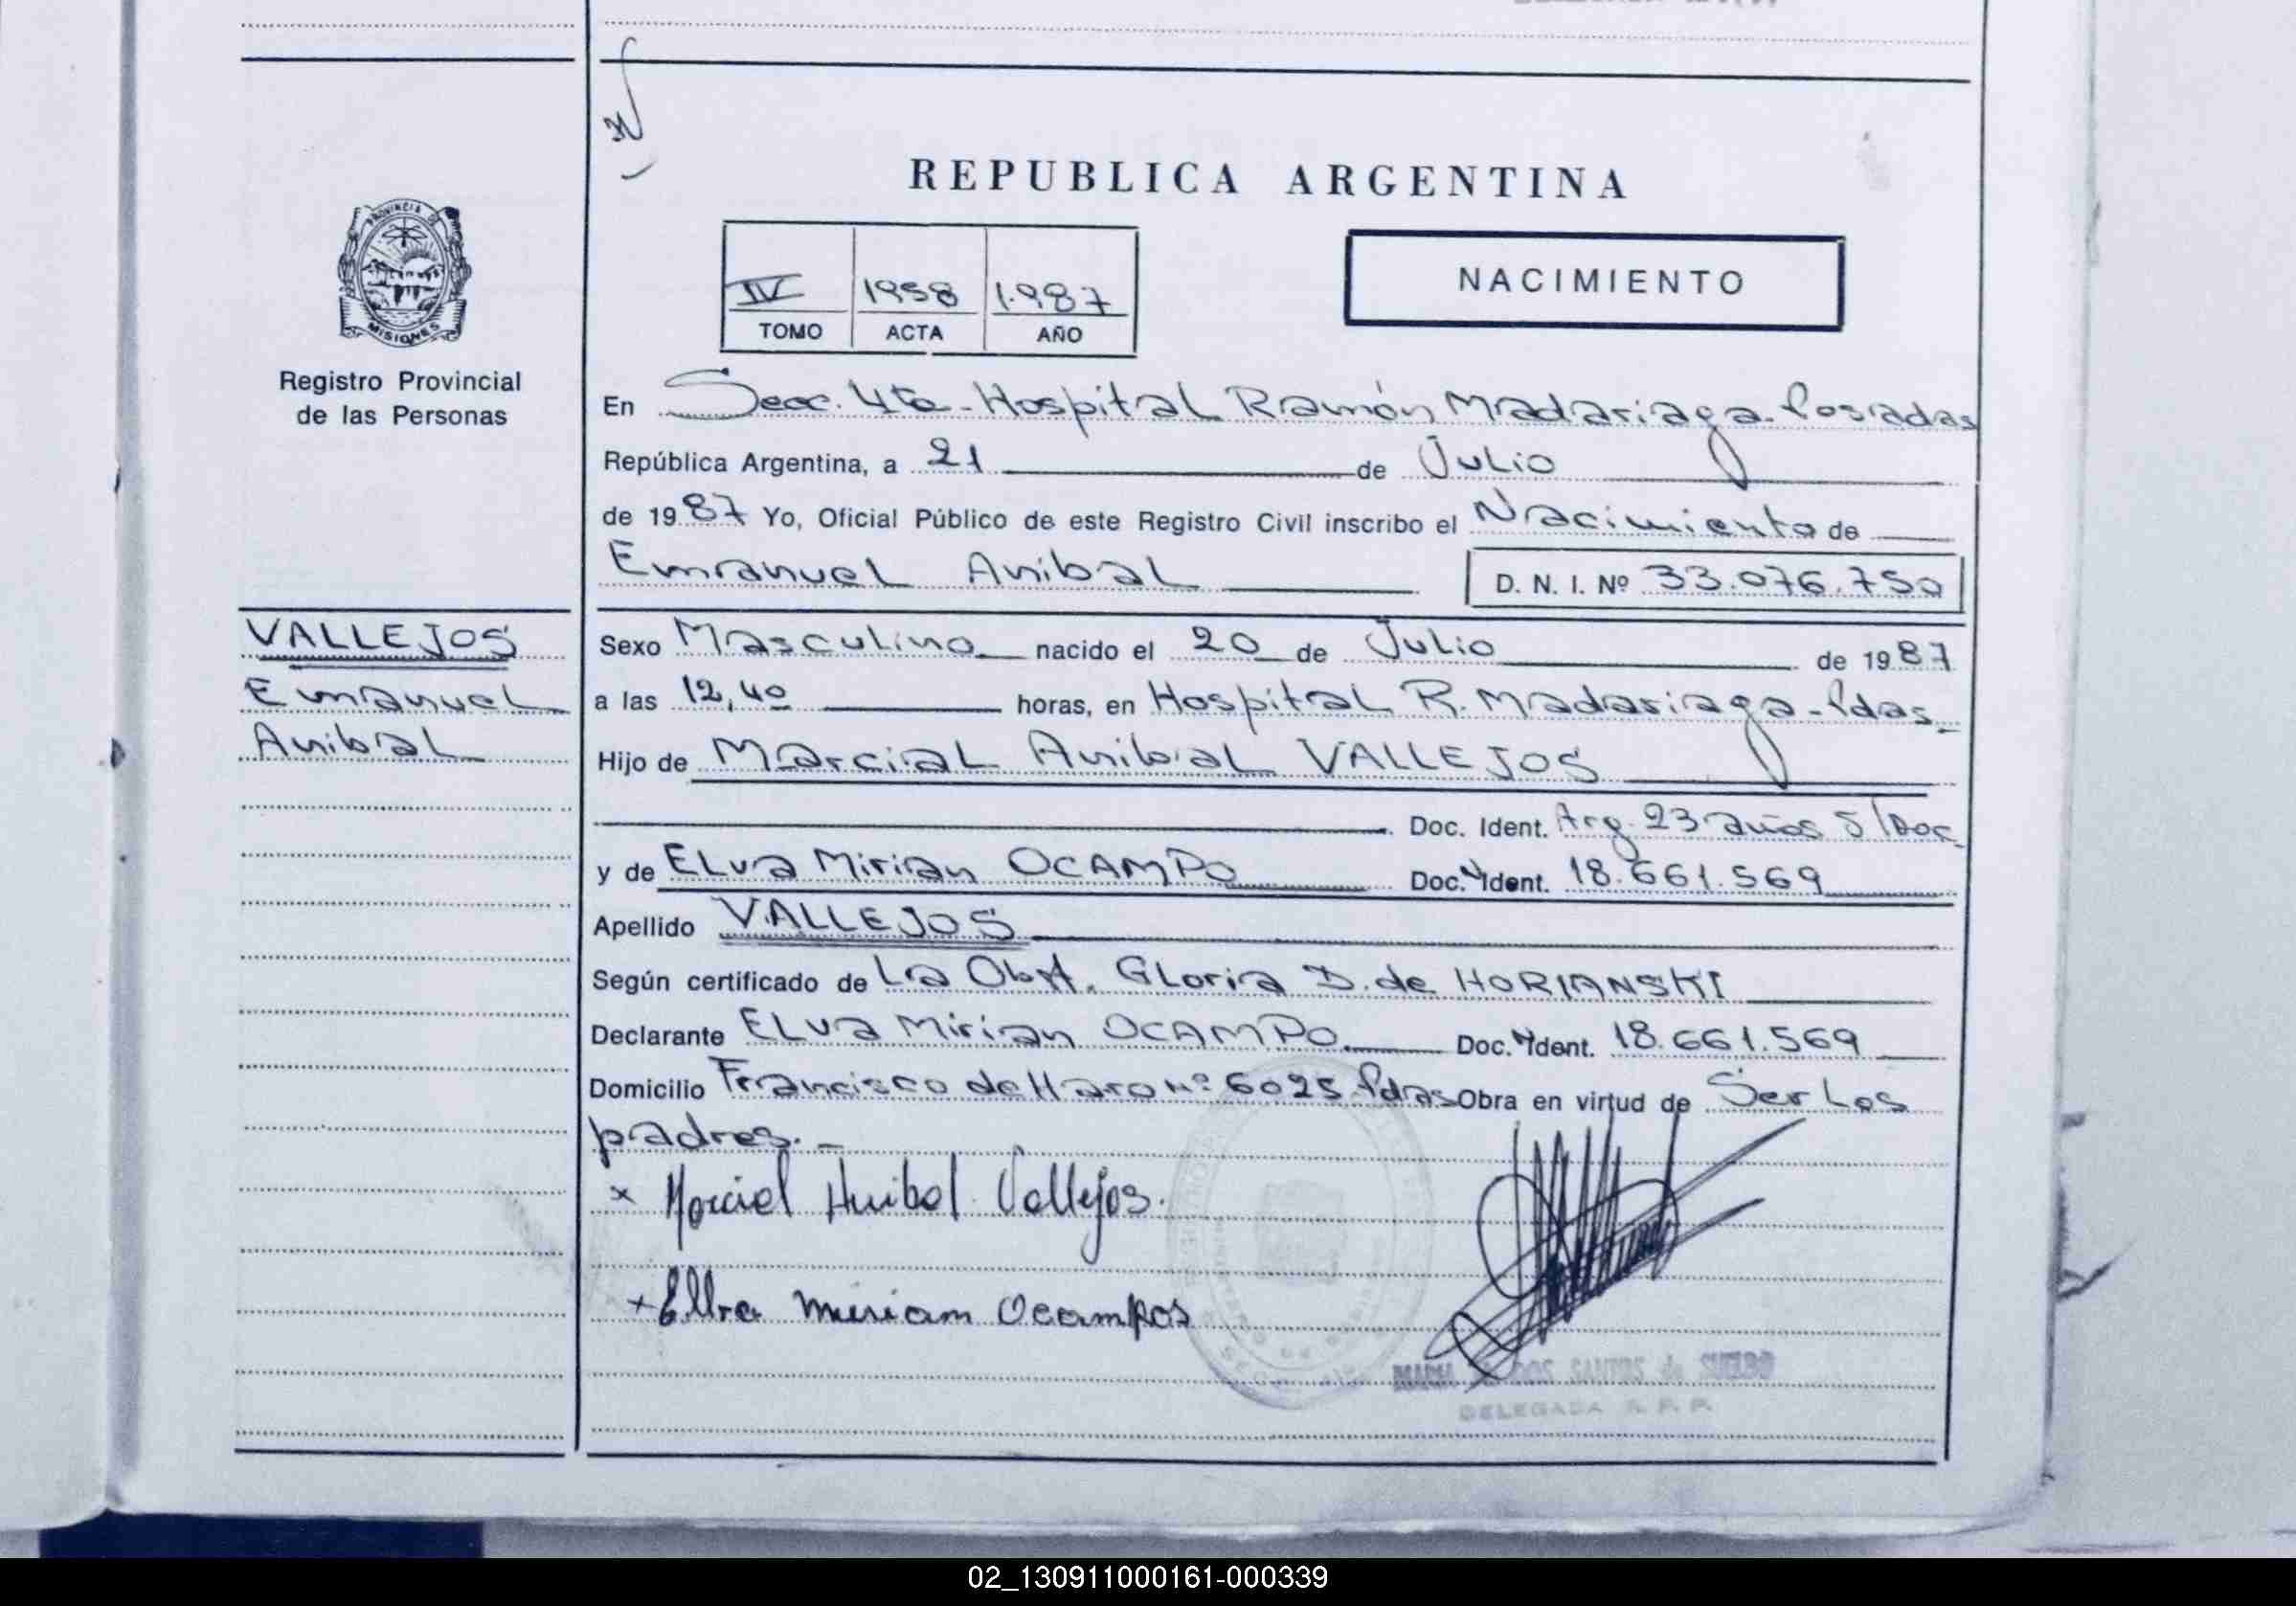 REPUBLICA ARGENTINA
IV 1958 1.987
TOMO ACTA AÑO
NACIMIENTO
PROVINCIA DE MISIONES
Registro Provincial
de las Personas
En Secc. 4ta - Hospital Ramón Madariaga - Posadas
República Argentina, a 21 de Julio
de 1987 Yo, Oficial Público de este Registro Civil inscribo el Nacimiento de
Emanuel Anibal D. N. I. Nº 33.076.750
VALLEJOS
Emanuel
Anibal
Sexo Masculino nacido el 20 de Julio de 1987
a las 12,40 horas, en Hospital R. Madariaga - Pdas
Hijo de Marcial Anibal VALLEJOS
Doc. Ident. Arg. 23 años S/Doc
y de ELva Mirian OCAMPO Doc. Ident. 18.661.569
Apellido VALLEJOS
Según certificado de La Obst. Gloria D. de HORIANSKI
Declarante ELva Mirian OCAMPO. Doc. Ident. 18.661.569
Domicilio Francisco de Haro Nº 6025 Pdas Obra en virtud de Ser Los
padres. -
x Marcial Anibal Vallejos.
+ Elva Miriam Ocampos
DOS SANTOS de
DELEGADA R. P. P.
02_130911000161-000339